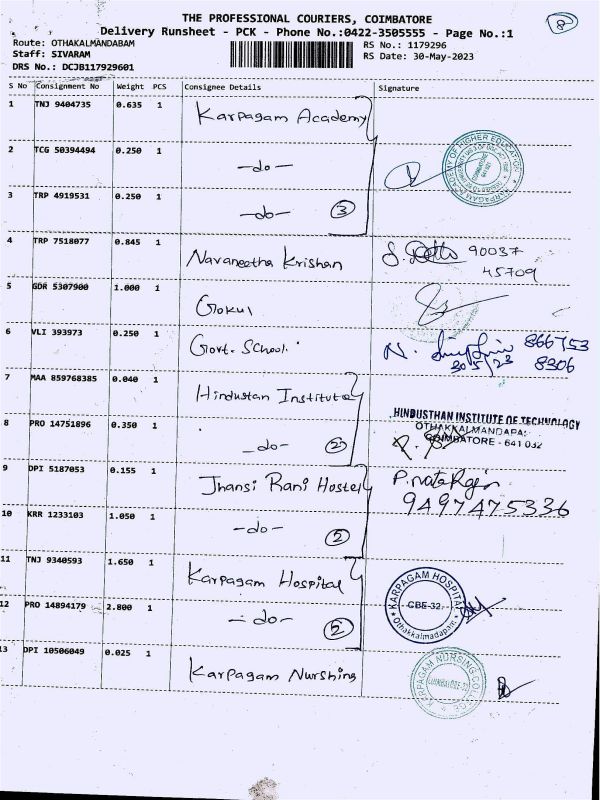 THE PROFESSIONAL COURIERS, COIMBATORE
8
Delivery Runsheet - PCK - Phone No.:0422-3505555 - Page No.:1
Route: OTHAKALMANDABAM
RS No.: 1179296
Staff: SIVARAM
RS Date: 30-May-2023
DRS No.: DCJB117929601
S No Consignment No Weight PCS Consignee Details Signature
1 TNJ 9404735 0.635 1 Karpagam Academy
2 TCG 50394494 0.250 1 -do-
KARPAGAM ACADEMY OF HIGHER EDUCATION
COIMBATORE
641 021
3 TRP 4919531 0.250 1 -do- 3
4 TRP 7518077 0.845 1 Navaneetha Krishan 90037
45709
5 GDR 5307900 1.000 1 Gokul
6 VLI 393973 0.250 1 Govt. School. 866753
30/5/23 8306
7 MAA 859768385 0.040 1 Hindustan Institute
HINDUSTHAN INSTITUTE OF TECHNOLOGY
OTHAKKALMANDAPAM
COIMBATORE - 641 032
8 PRO 14751896 0.350 1 -do- 2
9 DPI 5187053 0.155 1 Jhansi Rani Hostel P. nataRajn
9497475336
10 KRR 1233103 1.050 1 -do- 2
11 TNJ 9340593 1.650 1 Karpagam Hospital
KARPAGAM HOSPITAL
CBE-32.
Othakkalmadapam
12 PRO 14894179 2.800 1 -do- 2
13 DPI 10506049 0.025 1 Karpagam Nurshing
KARPAGAM NURSING COLLEGE
COIMBATORE-32